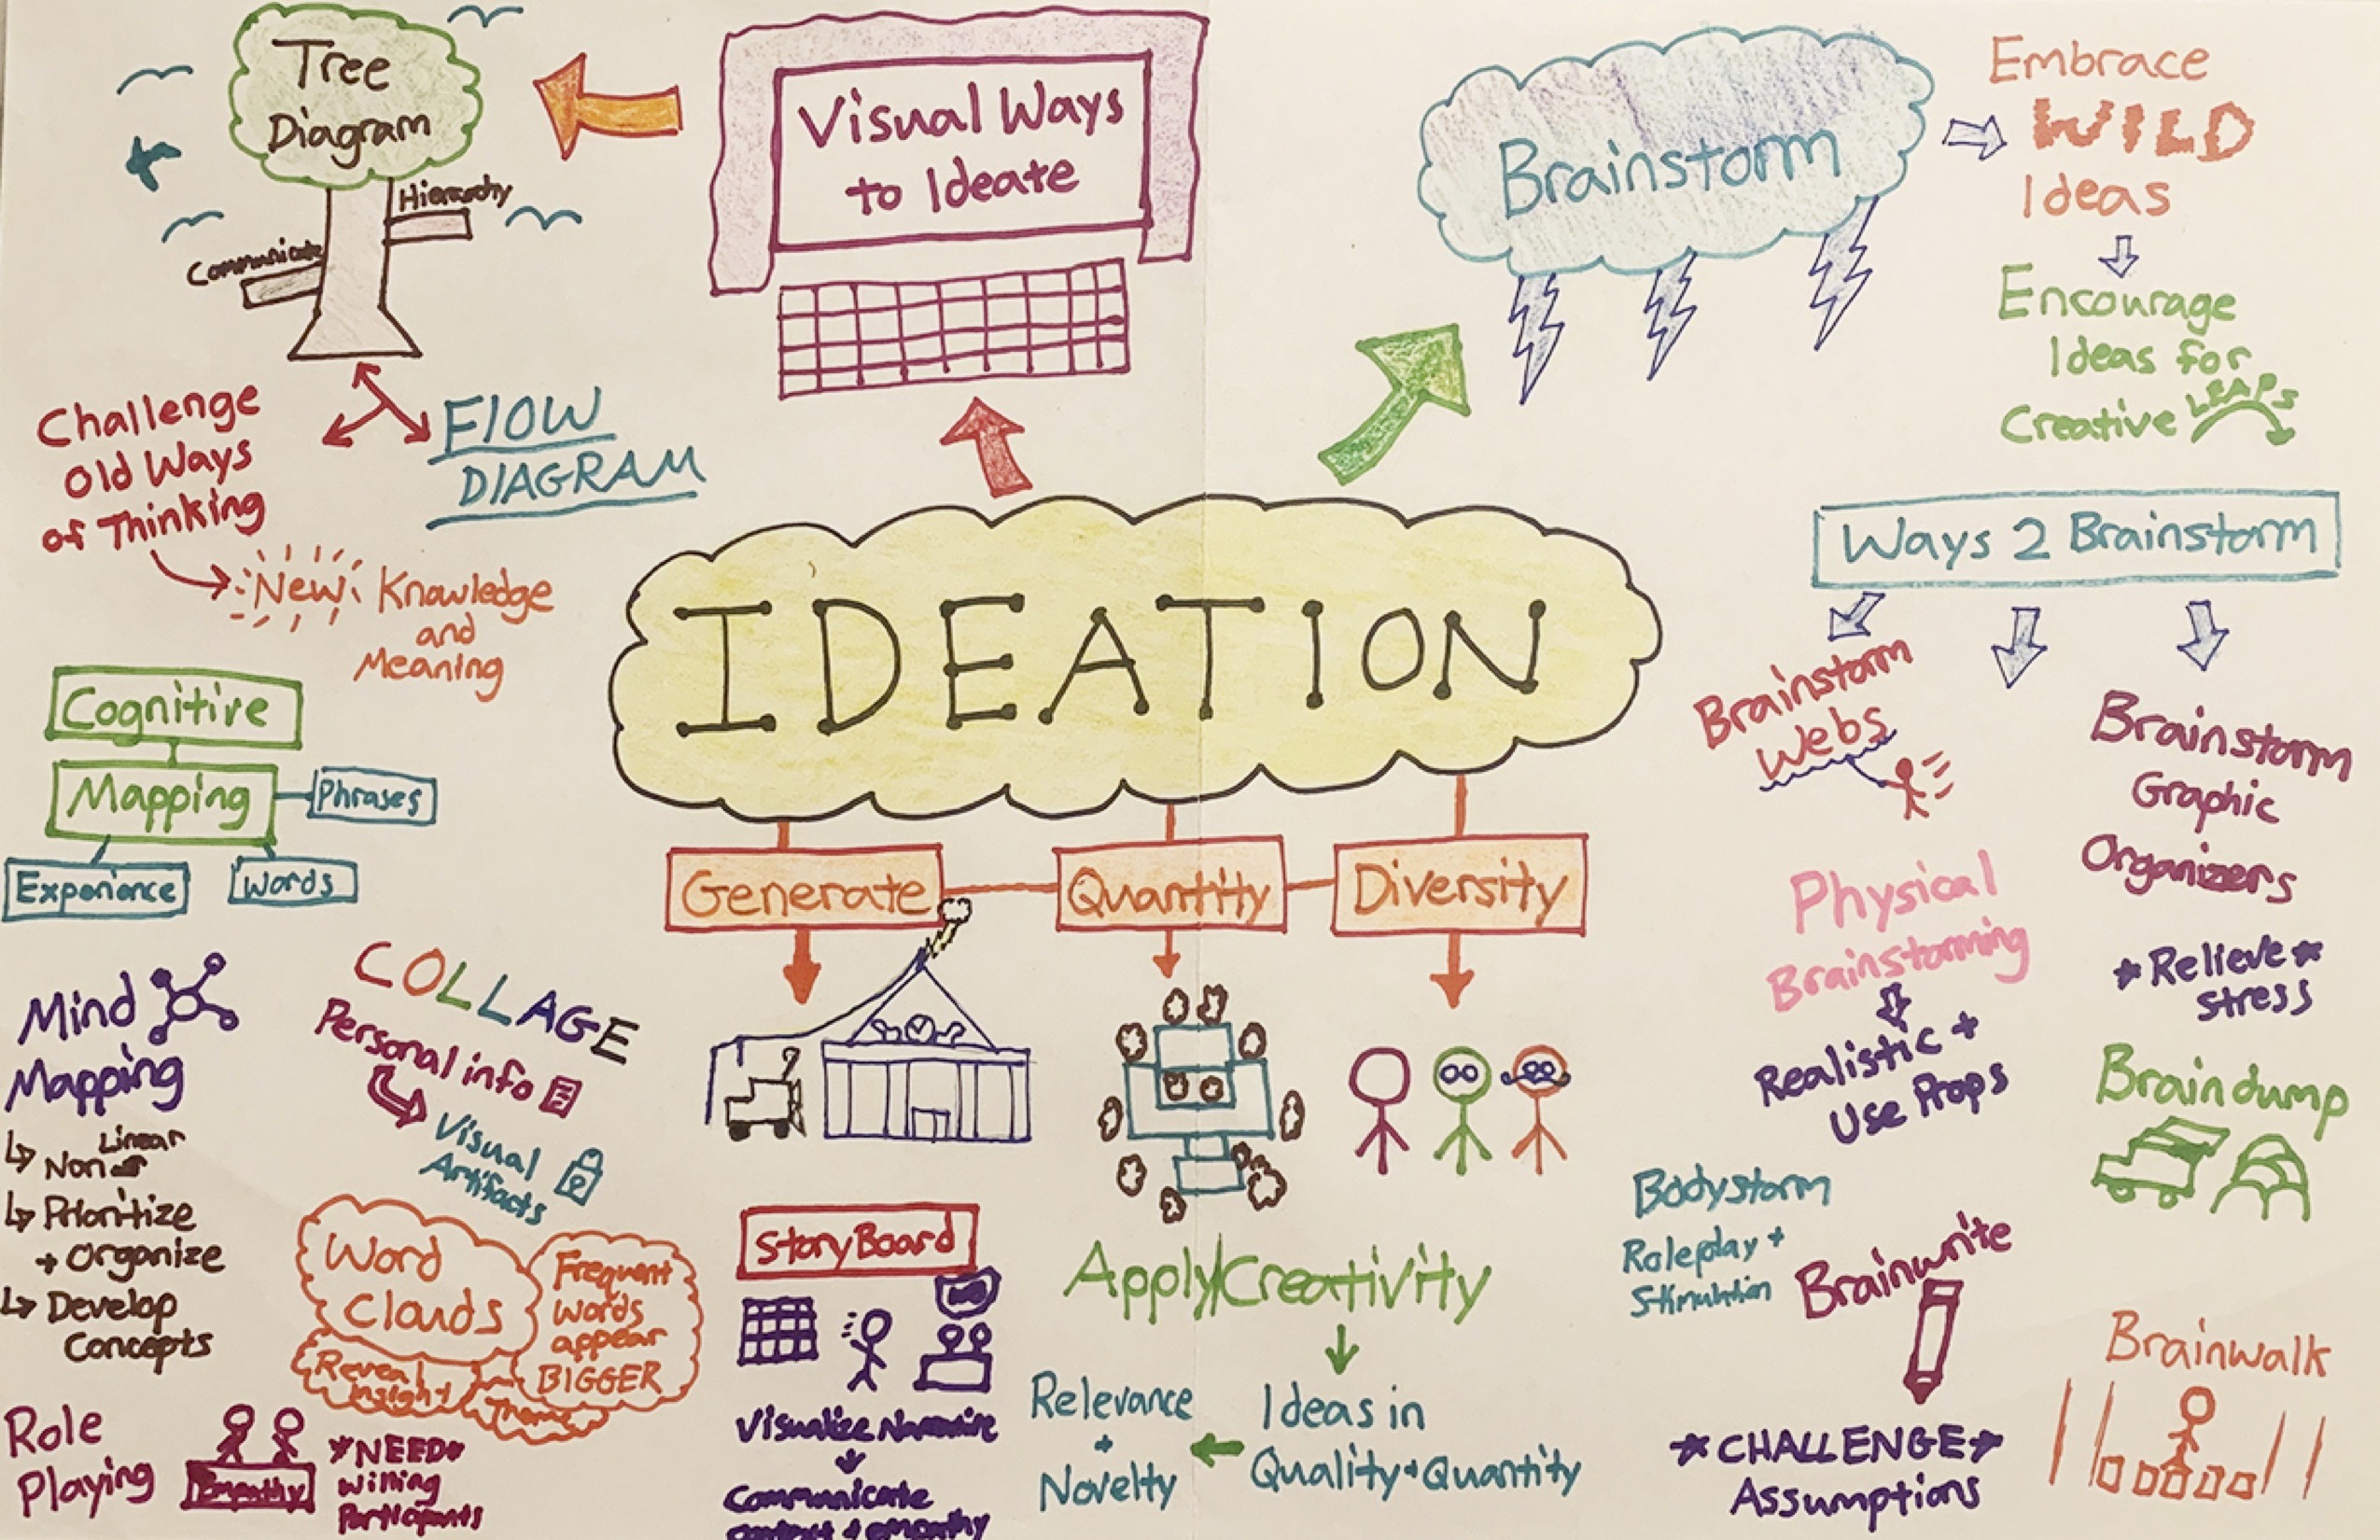 Tree
Diagram
Hierarchy
Communicate
Visual Ways
to Ideate
Brainstorm
Embrace
WILD
Ideas
Encourage
Ideas for
Creative LEAPS
Challenge
Old Ways
of Thinking
FLOW
DIAGRAM
New Knowledge
and
Meaning
IDEATION
Ways 2 Brainstorm
Brainstorm
Webs
Brainstorm
Graphic
Organizers
Cognitive
Mapping
Phrases
Experience
Words
Generate
Quantity
Diversity
Physical
Brainstorming
Realistic +
Use Props
Relieve
stress
Braindump
Mind
Mapping
Non Linear
Prioritize
+ Organize
Develop
Concepts
COLLAGE
Personal info
Visual
Artifacts
Word
Clouds
Frequent
words
appear
BIGGER
Reveal
insight
Theme
StoryBoard
Visualize Narrative
Communicate
context + empathy
Apply Creativity
Ideas in
Quality + Quantity
Relevance
+
Novelty
Bodystorm
Roleplay +
Brainwrite
CHALLENGE
Assumptions
Brainwalk
Role
Playing
Empathy
NEED
Willing
Participants